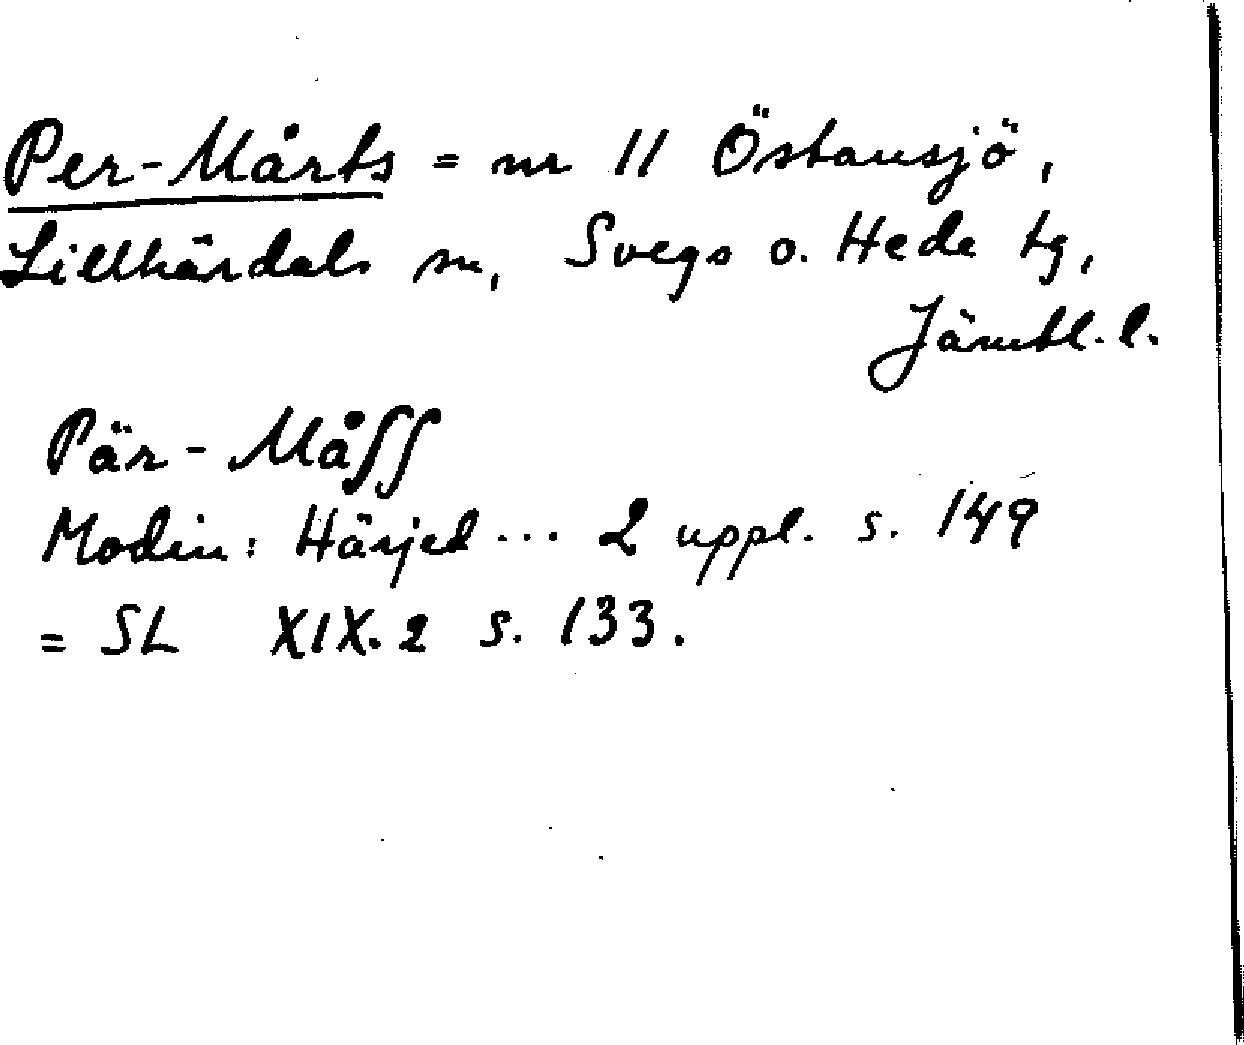 Per-Mårts = nr 11 Östansjö,
Lillhärdals sn, Svegs o. Hede tg,
Jämtl. l.
Pär-Måſſ
Modin: Härjed ... 2 uppl. s. 149
= SL XIX.2 s. 133.